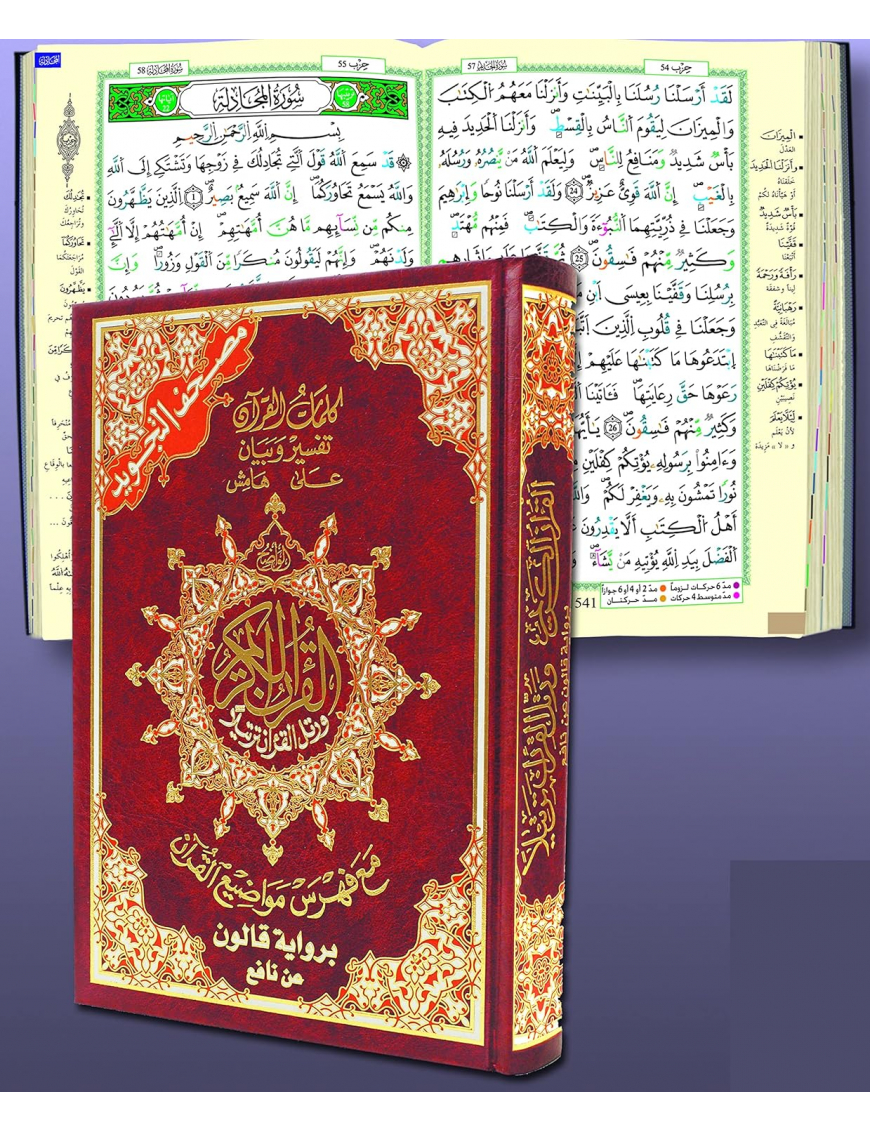 مصحف التجويد
كلمات القرآن
تفسير وبيان
على هامش
القرآن الكريم
ورتل القرآن ترتيلا
مع فهرس مواضيع القرآن
برواية قالون
عن نافع
القرآن الكريم ورتل القرآن ترتيلا
برواية قالون عن نافع
سُورَةُ المُجَادلة 58
حِزب 55
سُورَةُ المُجَادلَة
بِسْمِ اللَّهِ الرَّحْمَنِ الرَّحِيمِ
قَدْ سَمِعَ اللَّهُ قَوْلَ الَّتِي تُجَادِلُكَ فِي زَوْجِهَا وَتَشْتَكِي إِلَى اللَّهِ
وَاللَّهُ يَسْمَعُ تَحَاوُرَكُمَا إِنَّ اللَّهَ سَمِيعٌ بَصِيرٌ 1 الَّذِينَ يَظَّهَّرُونَ
مِنكُم مِّن نِّسَآئِهِم مَّا هُنَّ أُمَّهَاتِهِمْ إِنْ أُمَّهَاتُهُمْ إِلَّا
وَلَدْنَهُمْ وَإِنَّهُمْ لَيَقُولُونَ مُنكَرًا مِّنَ الْقَوْلِ وَزُورًا وَإِنَّ
57
حِزب 54
لَقَدْ أَرْسَلْنَا رُسُلَنَا بِالْبَيِّنَاتِ وَأَنزَلْنَا مَعَهُمُ الْكِتَابَ
وَالْمِيزَانَ لِيَقُومَ النَّاسُ بِالْقِسْطِ وَأَنزَلْنَا الْحَدِيدَ فِيهِ
بَأْسٌ شَدِيدٌ وَمَنَافِعُ لِلنَّاسِ وَلِيَعْلَمَ اللَّهُ مَنْ يَنصُرُهُ وَرُسُلَهُ
بِالْغَيْبِ إِنَّ اللَّهَ قَوِيٌّ عَزِيزٌ 24 وَلَقَدْ أَرْسَلْنَا نُوحًا وَإِبْرَاهِيمَ
وَجَعَلْنَا فِي ذُرِّيَّتِهِمَا النُّبُوءَةَ وَالْكِتَابَ فَمِنْهُم مُّهْتَدٍ
وَكَثِيرٌ مِّنْهُمْ فَاسِقُونَ 25 ثُمَّ
بِرُسُلِنَا وَقَفَّيْنَا بِعِيسَى ابْنِ
وَجَعَلْنَا فِي قُلُوبِ الَّذِينَ
ابْتَدَعُوهَا مَا كَتَبْنَاهَا عَلَيْهِمْ
رَعَوْهَا حَقَّ رِعَايَتِهَا فَـَٔاتَيْنَا
وَكَثِيرٌ مِّنْهُمْ فَاسِقُونَ 26
وَءَامِنُوا بِرَسُولِهِ يُؤْتِكُمْ كِفْلَيْنِ
نُورًا تَمْشُونَ بِهِ وَيَغْفِرْ لَكُمْ
أَهْلُ الْكِتَابِ أَلَّا يَقْدِرُونَ
الْفَضْلَ بِيَدِ اللَّهِ يُؤْتِيهِ مَنْ يَشَآءُ
الْمِيزَانَ
العَدْلَ
وَأَنزَلْنَا الْحَدِيدَ
خَلَقْنَاهُ
بَأْسٌ شَدِيدٌ
قُوَّةٌ شَدِيدَةٌ
قَفَّيْنَا
أَتْبَعْنَا
رَأْفَةً وَرَحْمَةً
لِينًا وشفقة
رَهْبَانِيَّةً
مَا كَتَبْنَاهَا
مَا فَرَضْنَاهَا
يُؤْتِكُمْ كِفْلَيْنِ
نَصِيبَيْنِ
لِئَلَّا يَعْلَمَ
و « لا » مَزِيدَة
مدّ 6 حركات لزوماً مدّ 2 أو 4 أو 6 جوازاً
مدّ متوسط 4 حركات مدّ حركتان
541